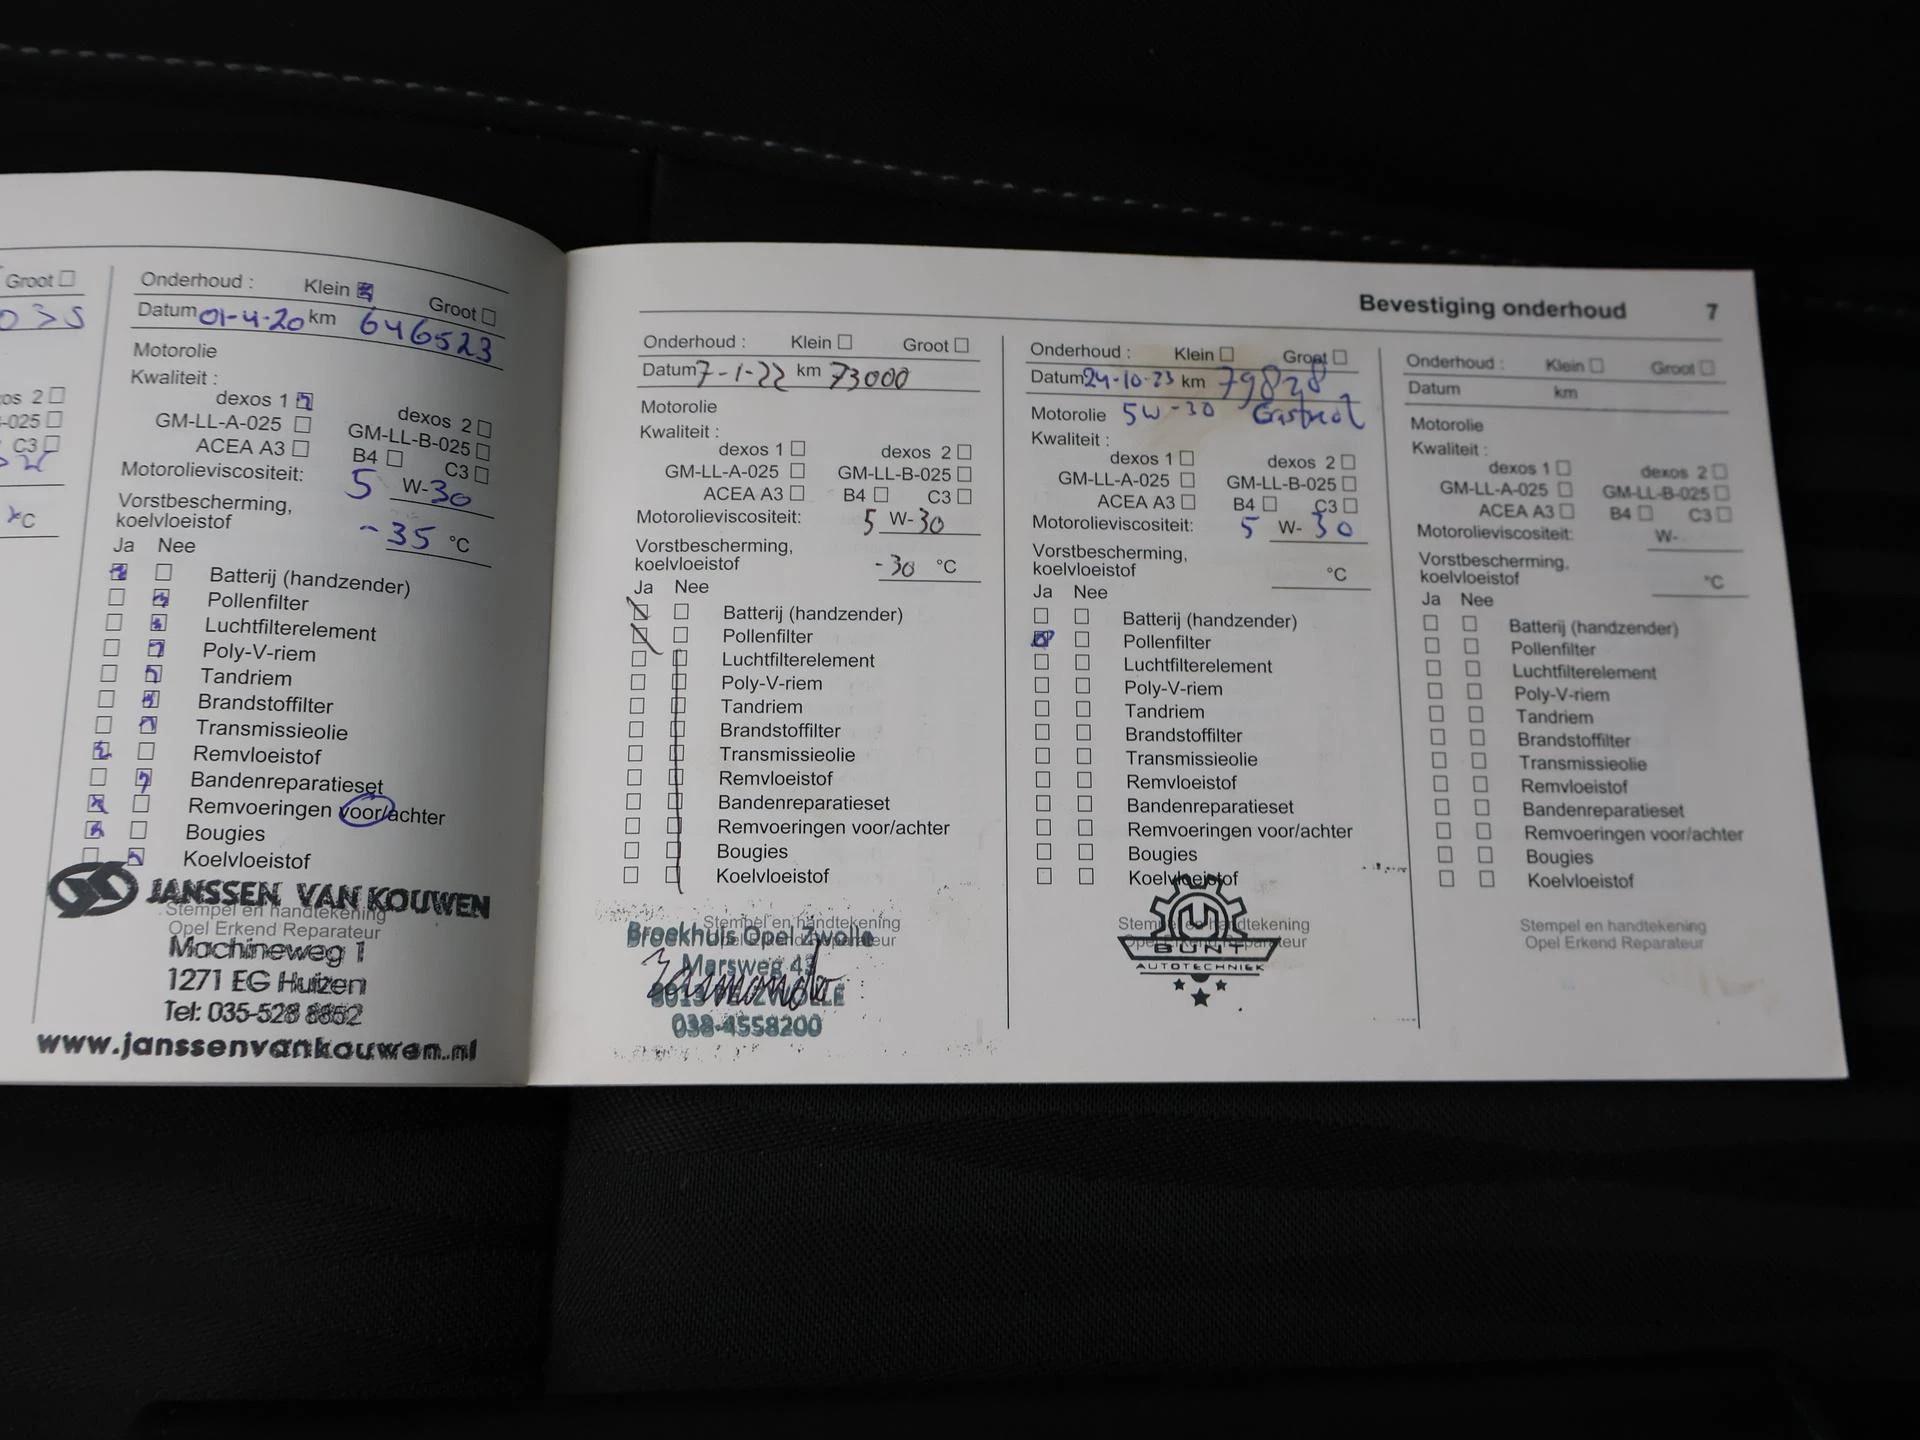 Groot
os 2
-025
C3
°C
Onderhoud : Klein Groot
Datum 01-4-20 km 646523
Motorolie
Kwaliteit :
dexos 1 dexos 2
GM-LL-A-025 GM-LL-B-025
ACEA A3 B4 C3
Motorolieviscositeit: 5 W-30
Vorstbescherming,
koelvloeistof -35 °C
Ja Nee
Batterij (handzender)
Pollenfilter
Luchtfilterelement
Poly-V-riem
Tandriem
Brandstoffilter
Transmissieolie
Remvloeistof
Bandenreparatieset
Remvoeringen voor/achter
Bougies
Koelvloeistof
JANSSEN VAN KOUWEN
Stempel en handtekening
Opel Erkend Reparateur
Machineweg 1
1271 EG Huizen
Tel: 035-528 8852
www.janssenvankouwen.nl
Bevestiging onderhoud 7
Onderhoud : Klein Groot
Datum 7-1-22 km 73000
Motorolie
Kwaliteit :
dexos 1 dexos 2
GM-LL-A-025 GM-LL-B-025
ACEA A3 B4 C3
Motorolieviscositeit: 5 W-30
Vorstbescherming,
koelvloeistof -30 °C
Ja Nee
Batterij (handzender)
Pollenfilter
Luchtfilterelement
Poly-V-riem
Tandriem
Brandstoffilter
Transmissieolie
Remvloeistof
Bandenreparatieset
Remvoeringen voor/achter
Bougies
Koelvloeistof
Stempel en handtekening
Broekhuis Opel Zwolle
Opel Erkend Reparateur
Marsweg 43
ZWOLLE
038-4558200
Onderhoud : Klein Groot
Datum 24-10-23 km 79828
Motorolie 5W-30 Castrol
Kwaliteit :
dexos 1 dexos 2
GM-LL-A-025 GM-LL-B-025
ACEA A3 B4 C3
Motorolieviscositeit: 5 W-30
Vorstbescherming,
koelvloeistof °C
Ja Nee
Batterij (handzender)
Pollenfilter
Luchtfilterelement
Poly-V-riem
Tandriem
Brandstoffilter
Transmissieolie
Remvloeistof
Bandenreparatieset
Remvoeringen voor/achter
Bougies
Koelvloeistof
Stempel en handtekening
Opel Erkend Reparateur
BUNT
AUTOTECHNIEK
Onderhoud : Klein Groot
Datum km
Motorolie
Kwaliteit :
dexos 1 dexos 2
GM-LL-A-025 GM-LL-B-025
ACEA A3 B4 C3
Motorolieviscositeit: W-
Vorstbescherming,
koelvloeistof °C
Ja Nee
Batterij (handzender)
Pollenfilter
Luchtfilterelement
Poly-V-riem
Tandriem
Brandstoffilter
Transmissieolie
Remvloeistof
Bandenreparatieset
Remvoeringen voor/achter
Bougies
Koelvloeistof
Stempel en handtekening
Opel Erkend Reparateur